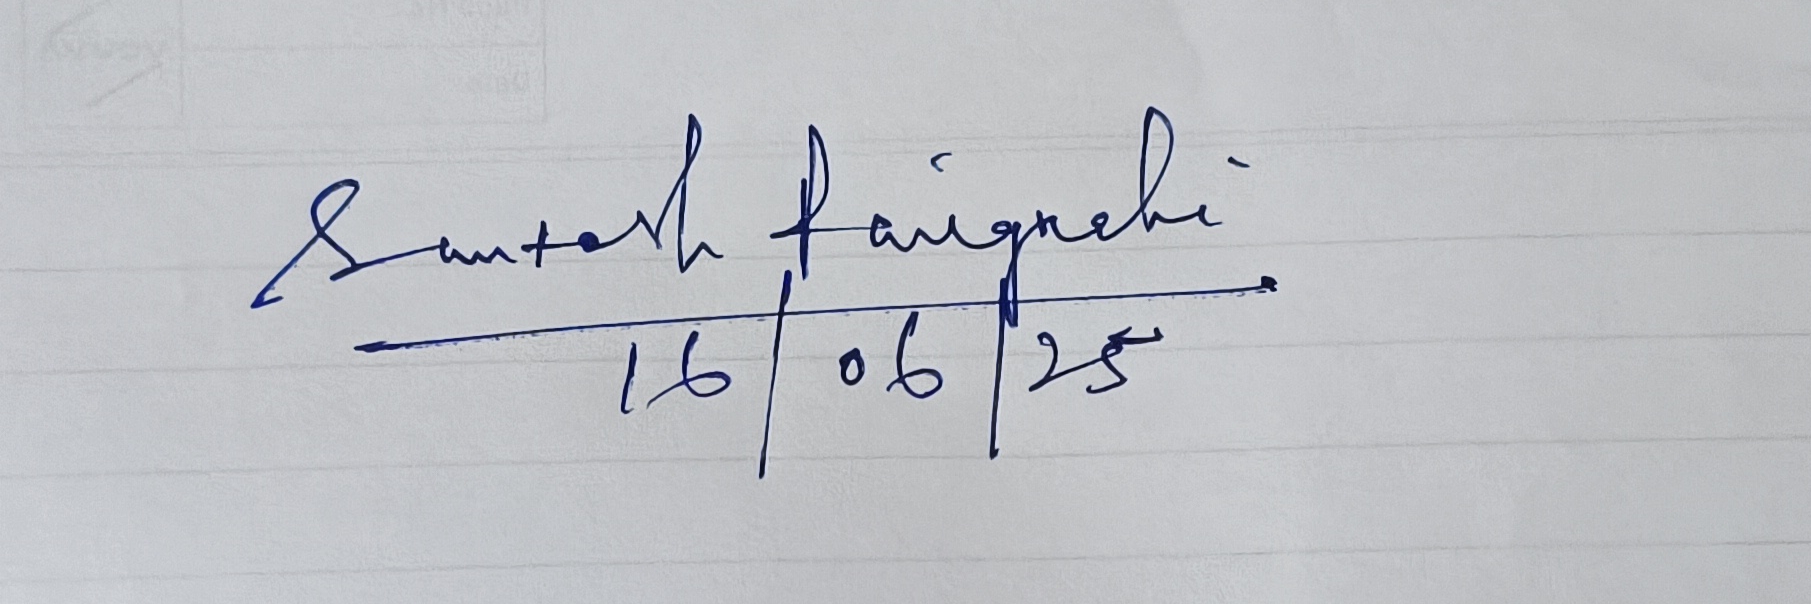 Santosh Panigrahi
16/06/25